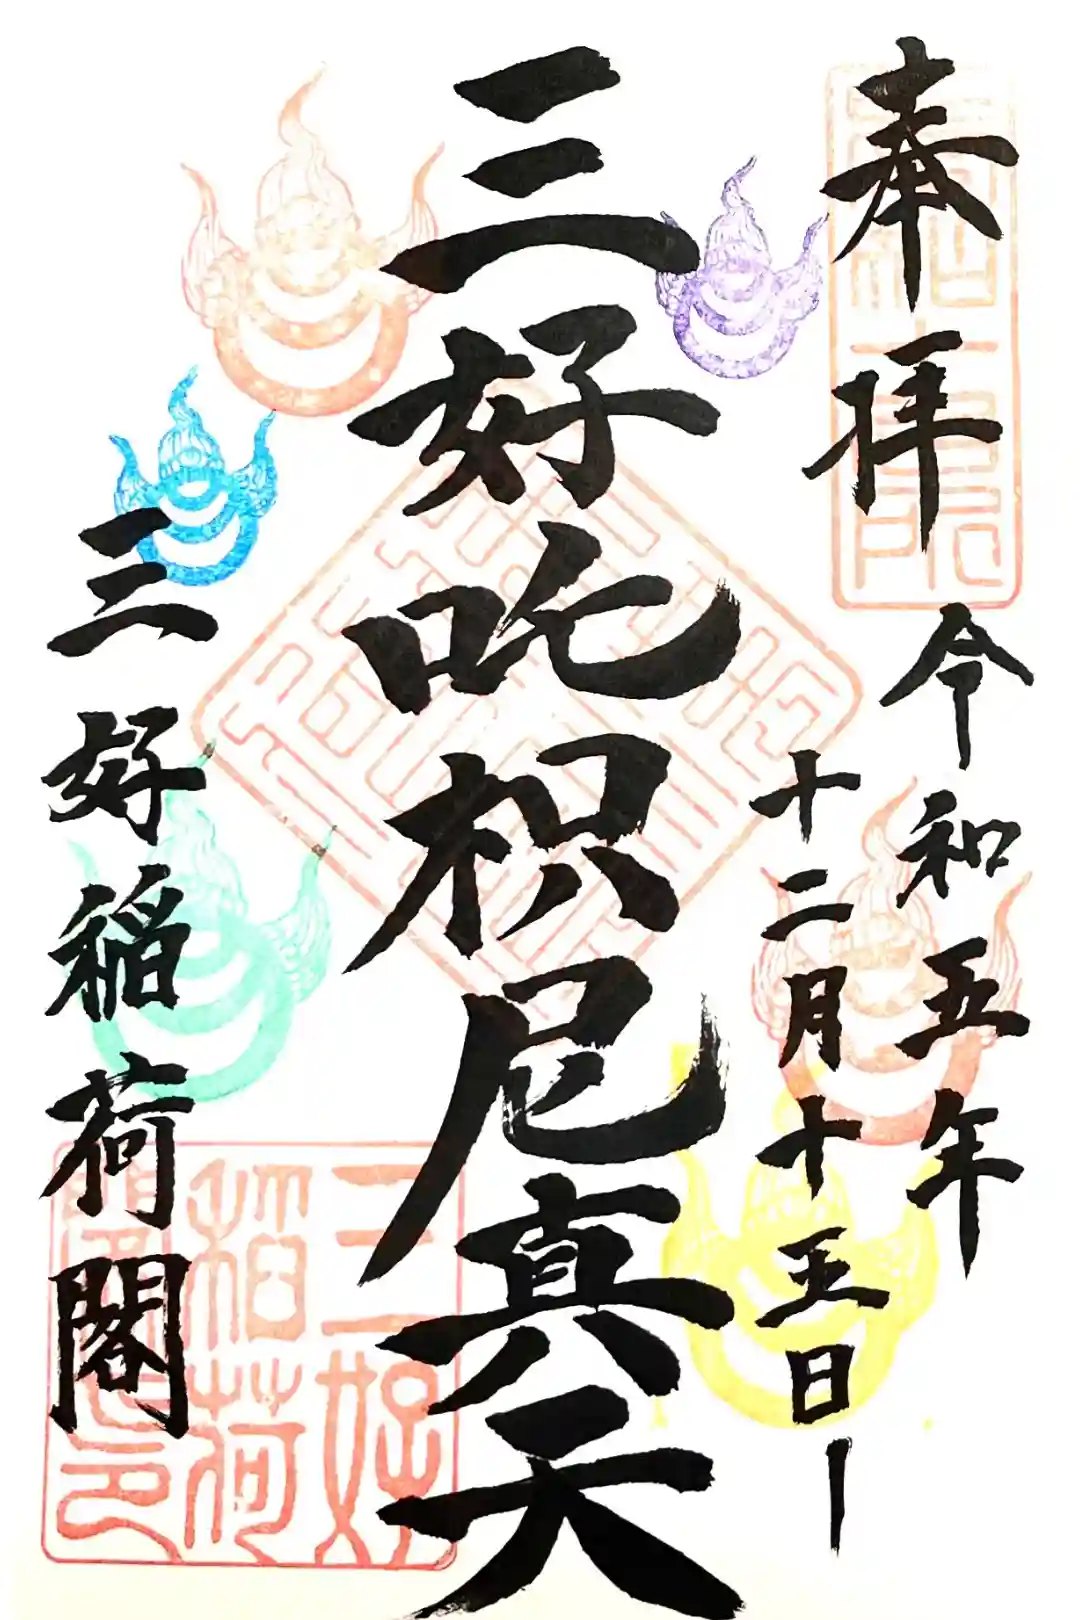 奉拝
令和五年
十二月十五日
三好吒枳尼真天
三好稲荷閣
三好
稲荷